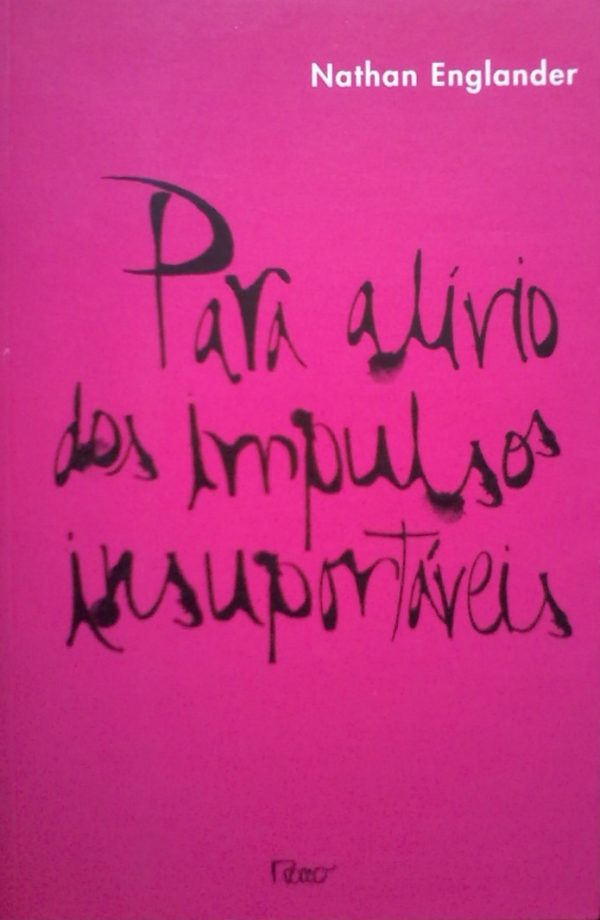 Nathan Englander
Para alívio
dos impulsos
insuportáveis
Rocco